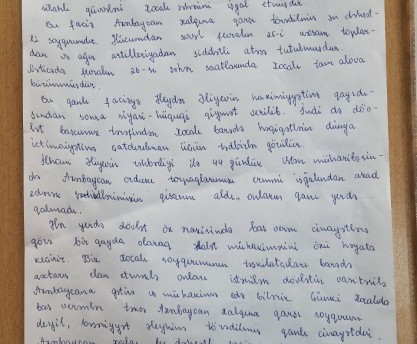 silahlı qüvvələri Xocalı şəhərini işğal etmişdir.
Bu faciə Azərbaycan xalqına qarşı törədilmiş ən dəhşət-
li soyqırımdır. Hücumdan əvvəl fevralın 25-i axşam toplar-
dan və ağır artilleriyadan şiddətli atəşə tutulmuşdur.
Nəticədə fevralın 26-sı səhər saatlarında Xocalı tam alova
bürünmüşdür.
Bu qanlı faciəyə Heydər Əliyevin hakimiyyətinə qayıdı-
şından sonra siyasi-hüquqi qiymət verilib. İndi də döv-
lət başçımız tərəfindən Xocalı barədə həqiqətlərin dünya
ictimaiyyətinə çatdırılması üçün tədbirlər görülür.
İlham Əliyevin rəhbərliyi ilə 44 günlük Vətən müharibəsin-
də Azərbaycan ordusu torpaqlarımızı erməni işğalından azad
edərək şəhidlərimizin qisasını aldı, onların qanı yerdə
qalmadı.
Hər yerdə dövlət öz ərazisində baş verən cinayətlərə
görə bir qayda olaraq məhkəməsini özü həyata
keçirir. Biz Xocalı soyqırımının təşkilatçıları barədə
axtarış elan etməklə onları istənilən dövlətin vasitəsilə
Azərbaycana gətirə və mühakimə edə bilərik. Çünki Xocalıda
baş verənlər təkcə Azərbaycan xalqına qarşı soyqırım
deyil, bəşəriyyət əleyhinə törədilmiş qanlı cinayətdir.
Azərbaycan xalqı bu dəhşətli